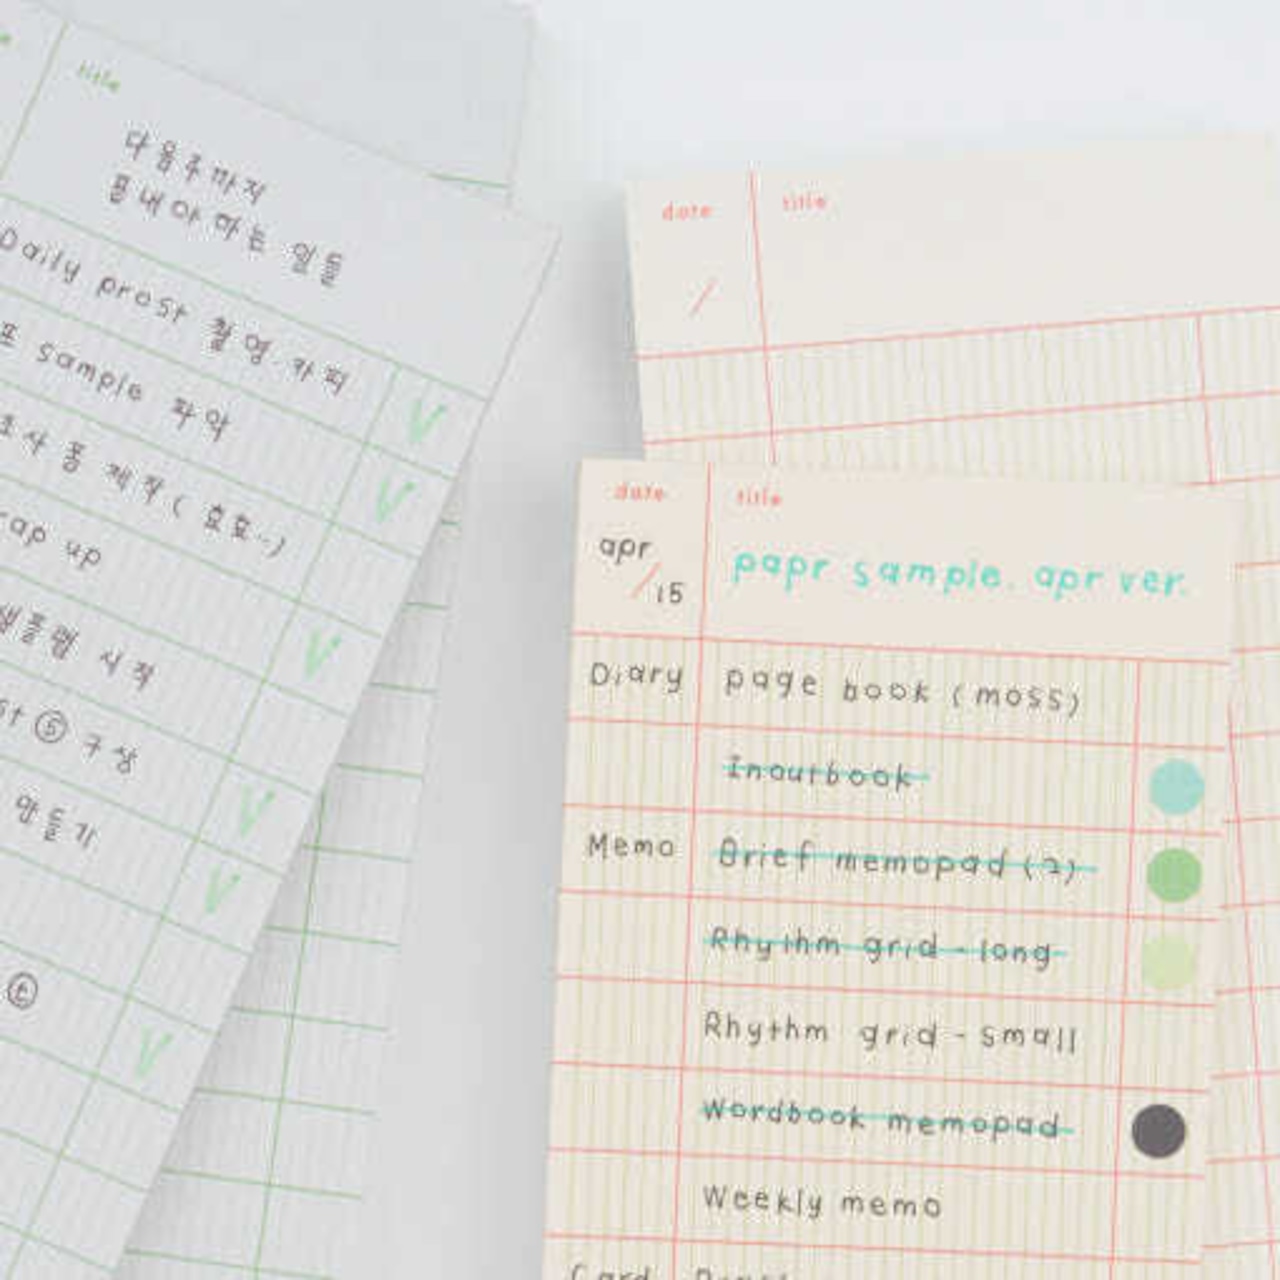 title
다음주까지
끝내야하는 일들
Daily prost 촬영.카피
sample 파악
조사 폼 제작 (효효..)
rap up
샘플랩 시작
st ⑤ 구상
만들기
date
title
/
date
title
apr
/
15
papr sample. apr ver.
Diary
page book (moss)
Inoutbook
Memo
Brief memopad (2)
Rhythm grid - long
Rhythm grid - small
Wordbook memopad
Weekly memo
Card